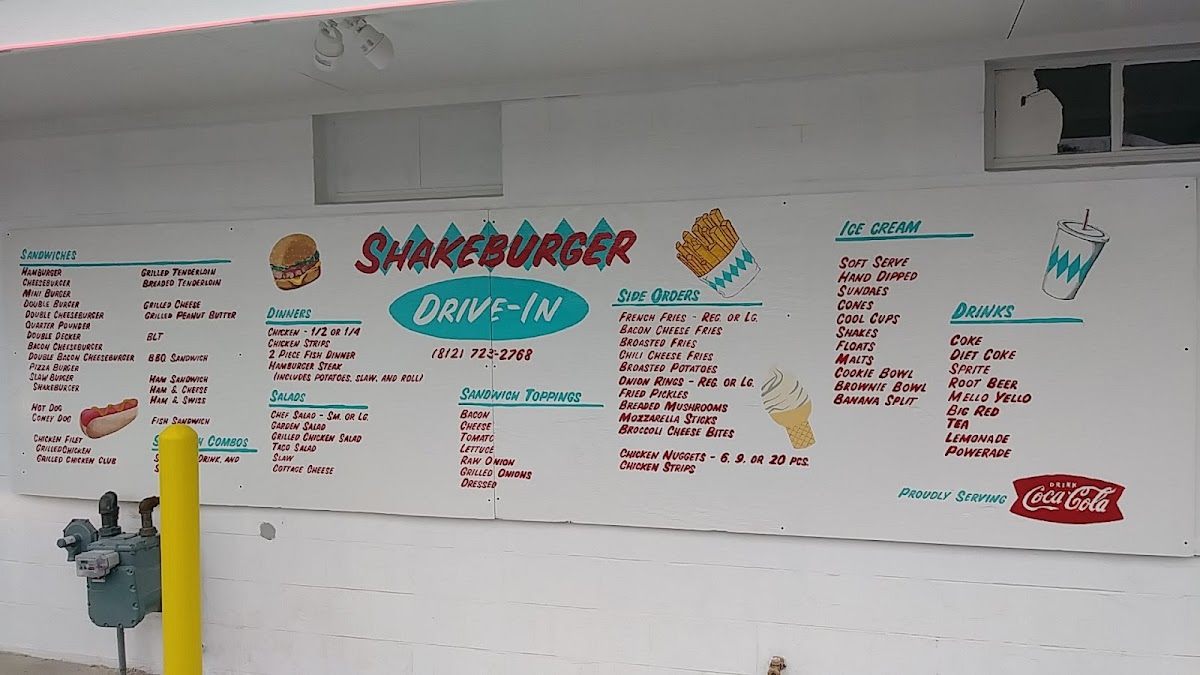 SANDWICHES
HAMBURGER
CHEESEBURGER
MINI BURGER
DOUBLE BURGER
DOUBLE CHEESEBURGER
QUARTER POUNDER
DOUBLE DECKER
BACON CHEESEBURGER
DOUBLE BACON CHEESEBURGER
PIZZA BURGER
SLAW BURGER
SHAKEBURGER
HOT DOG
CONEY DOG
CHICKEN FILET
GRILLED CHICKEN
GRILLED CHICKEN CLUB
GRILLED TENDERLOIN
BREADED TENDERLOIN
GRILLED CHEESE
GRILLED PEANUT BUTTER
BLT
BBQ SANDWICH
HAM SANDWICH
HAM & CHEESE
HAM & SWISS
FISH SANDWICH
COMBOS
DRINK, AND
DINNERS
CHICKEN - 1/2 OR 1/4
CHICKEN STRIPS
2 PIECE FISH DINNER
HAMBURGER STEAK
(INCLUDES POTATOES, SLAW, AND ROLL)
SALADS
CHEF SALAD - SM. OR LG.
GARDEN SALAD
GRILLED CHICKEN SALAD
TACO SALAD
SLAW
COTTAGE CHEESE
SHAKEBURGER
DRIVE-IN
(812) 723-2768
SANDWICH TOPPINGS
BACON
CHEESE
TOMATO
LETTUCE
RAW ONION
GRILLED ONIONS
DRESSED
SIDE ORDERS
FRENCH FRIES - REG. OR LG.
BACON CHEESE FRIES
BROASTED FRIES
CHILI CHEESE FRIES
BROASTED POTATOES
ONION RINGS - REG. OR LG.
FRIED PICKLES
BREADED MUSHROOMS
MOZZARELLA STICKS
BROCCOLI CHEESE BITES
CHICKEN NUGGETS - 6, 9, OR 20 PCS.
CHICKEN STRIPS
ICE CREAM
SOFT SERVE
HAND DIPPED
SUNDAES
CONES
COOL CUPS
SHAKES
FLOATS
MALTS
COOKIE BOWL
BROWNIE BOWL
BANANA SPLIT
DRINKS
COKE
DIET COKE
SPRITE
ROOT BEER
MELLO YELLO
BIG RED
TEA
LEMONADE
POWERADE
PROUDLY SERVING
DRINK
Coca-Cola